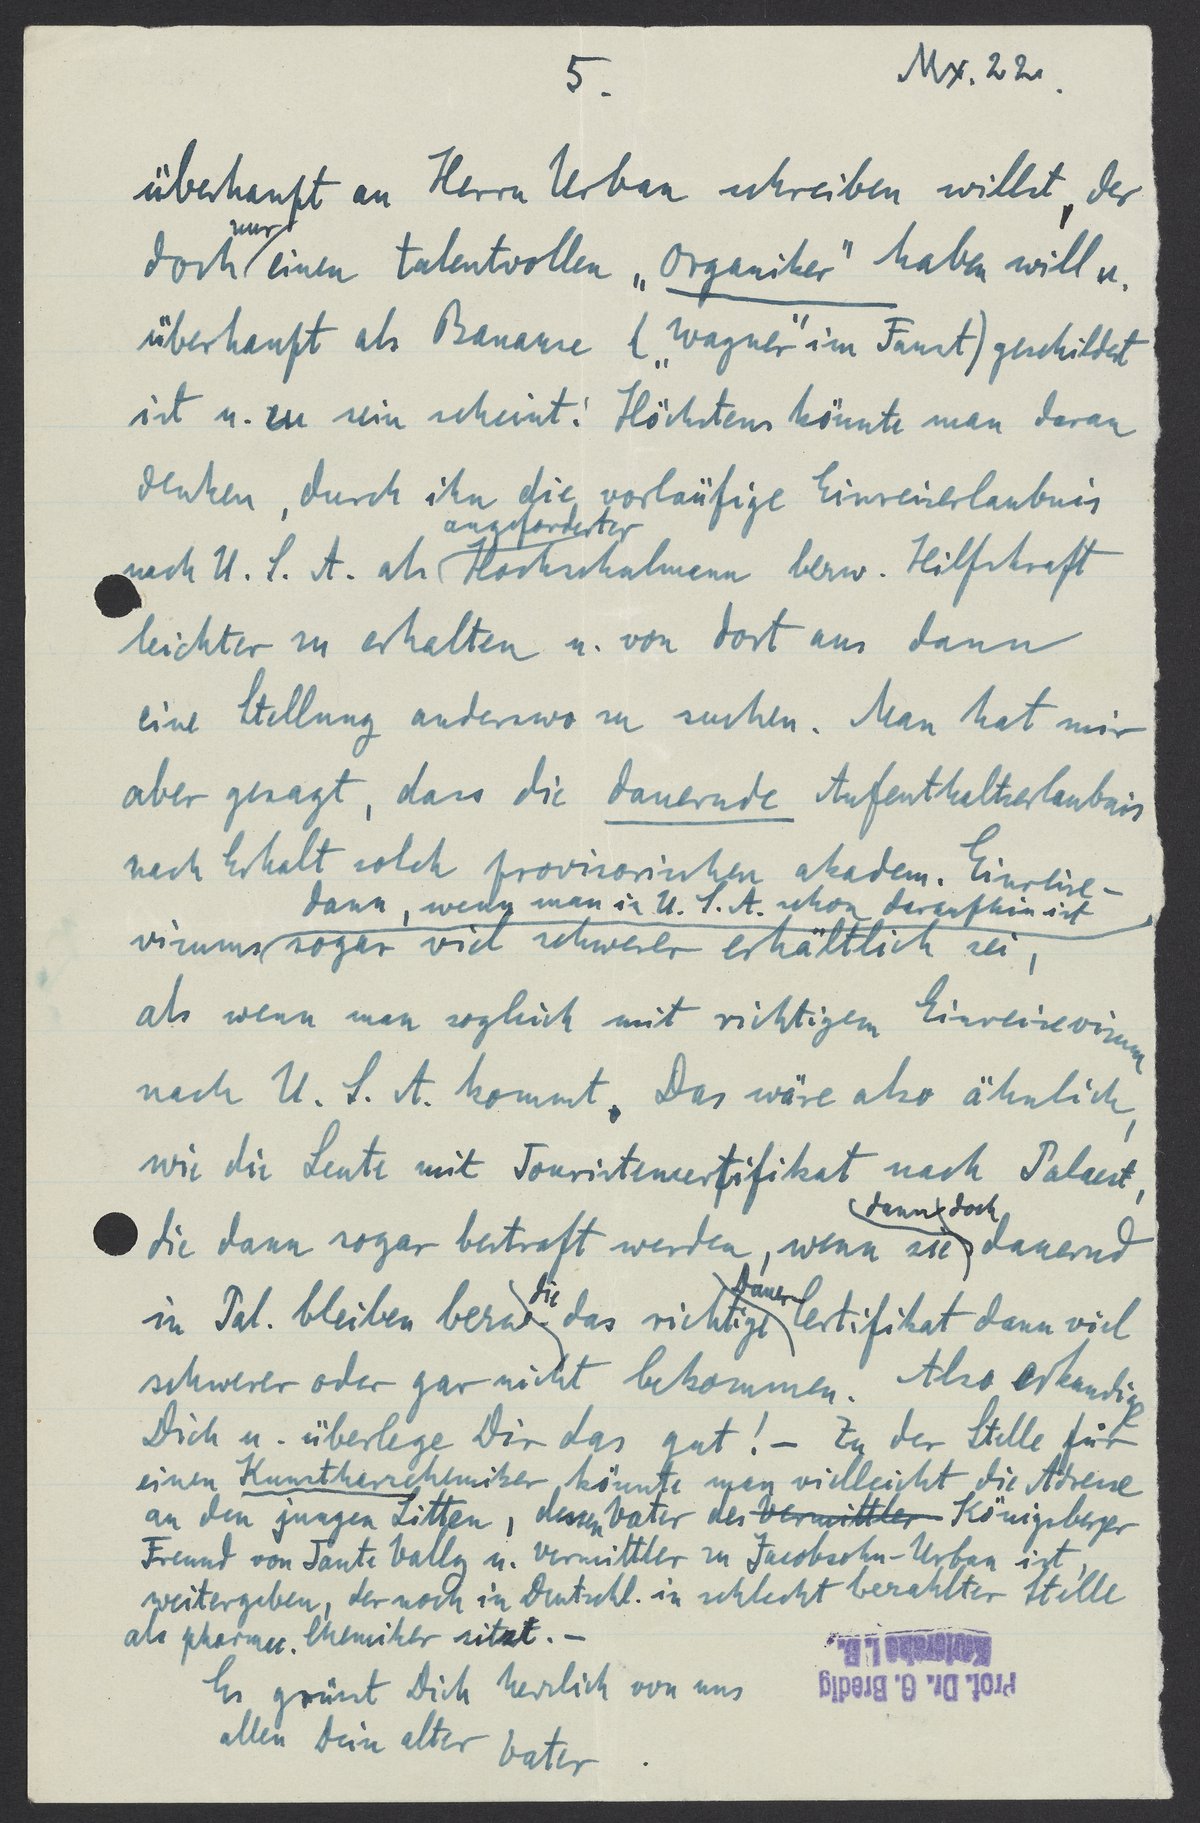 5.
Mx. 22.
überhaupt an Herrn Urban schreiben willst, der
nur
doch einen talentvollen „Organiker“ haben will u.
überhaupt als Banause („Wagner“ im Faust) geschildert
ist u. zu sein scheint! Höchstens könnte man daran
denken, durch ihn die vorläufige Einreiserlaubnis
angeforderter
nach U. S. A. als Hochschulmann bezw. Hilfskraft
leichter zu erhalten u. von dort aus dann
eine Stellung anderswo zu suchen. Man hat mir
aber gesagt, dass die dauernde Aufenthaltserlaubnis
nach Erhalt solch provisorischen akadem. Einreise-
dann, wenn man in U. S. A. schon daraufhin ist
visums sogar viel schwerer erhältlich sei,
als wenn man sogleich mit richtigem Einreisevisum
nach U. S. A. kommt. Das wäre also ähnlich,
wie die Leute mit Touristenzertifikat nach Palaest,
dann doch
die dann sogar bestraft werden, wenn sie dauernd
die Dauer
in Pal. bleiben bezw. das richtige Certifikat dann viel
schwerer oder gar nicht bekommen. Also erkundige
Dich u. überlege Dir das gut! – Zu der Stelle für
einen Kunstharzchemiker könnte man vielleicht die Adresse
an den jungen Litten, dessen Vater des Vermittler Königsberger
Freund von Tante Vally u. Vermittler zu Jacobsohn-Urban ist,
weitergeben, der noch in Deutschl. in schlecht bezahlter Stelle
als pharmac. Chemiker sitzt. –
Es grüsst Dich herzlich von uns
allen Dein alter Vater.
Prof. Dr. G. Bredig
Karlsruhe i. B.